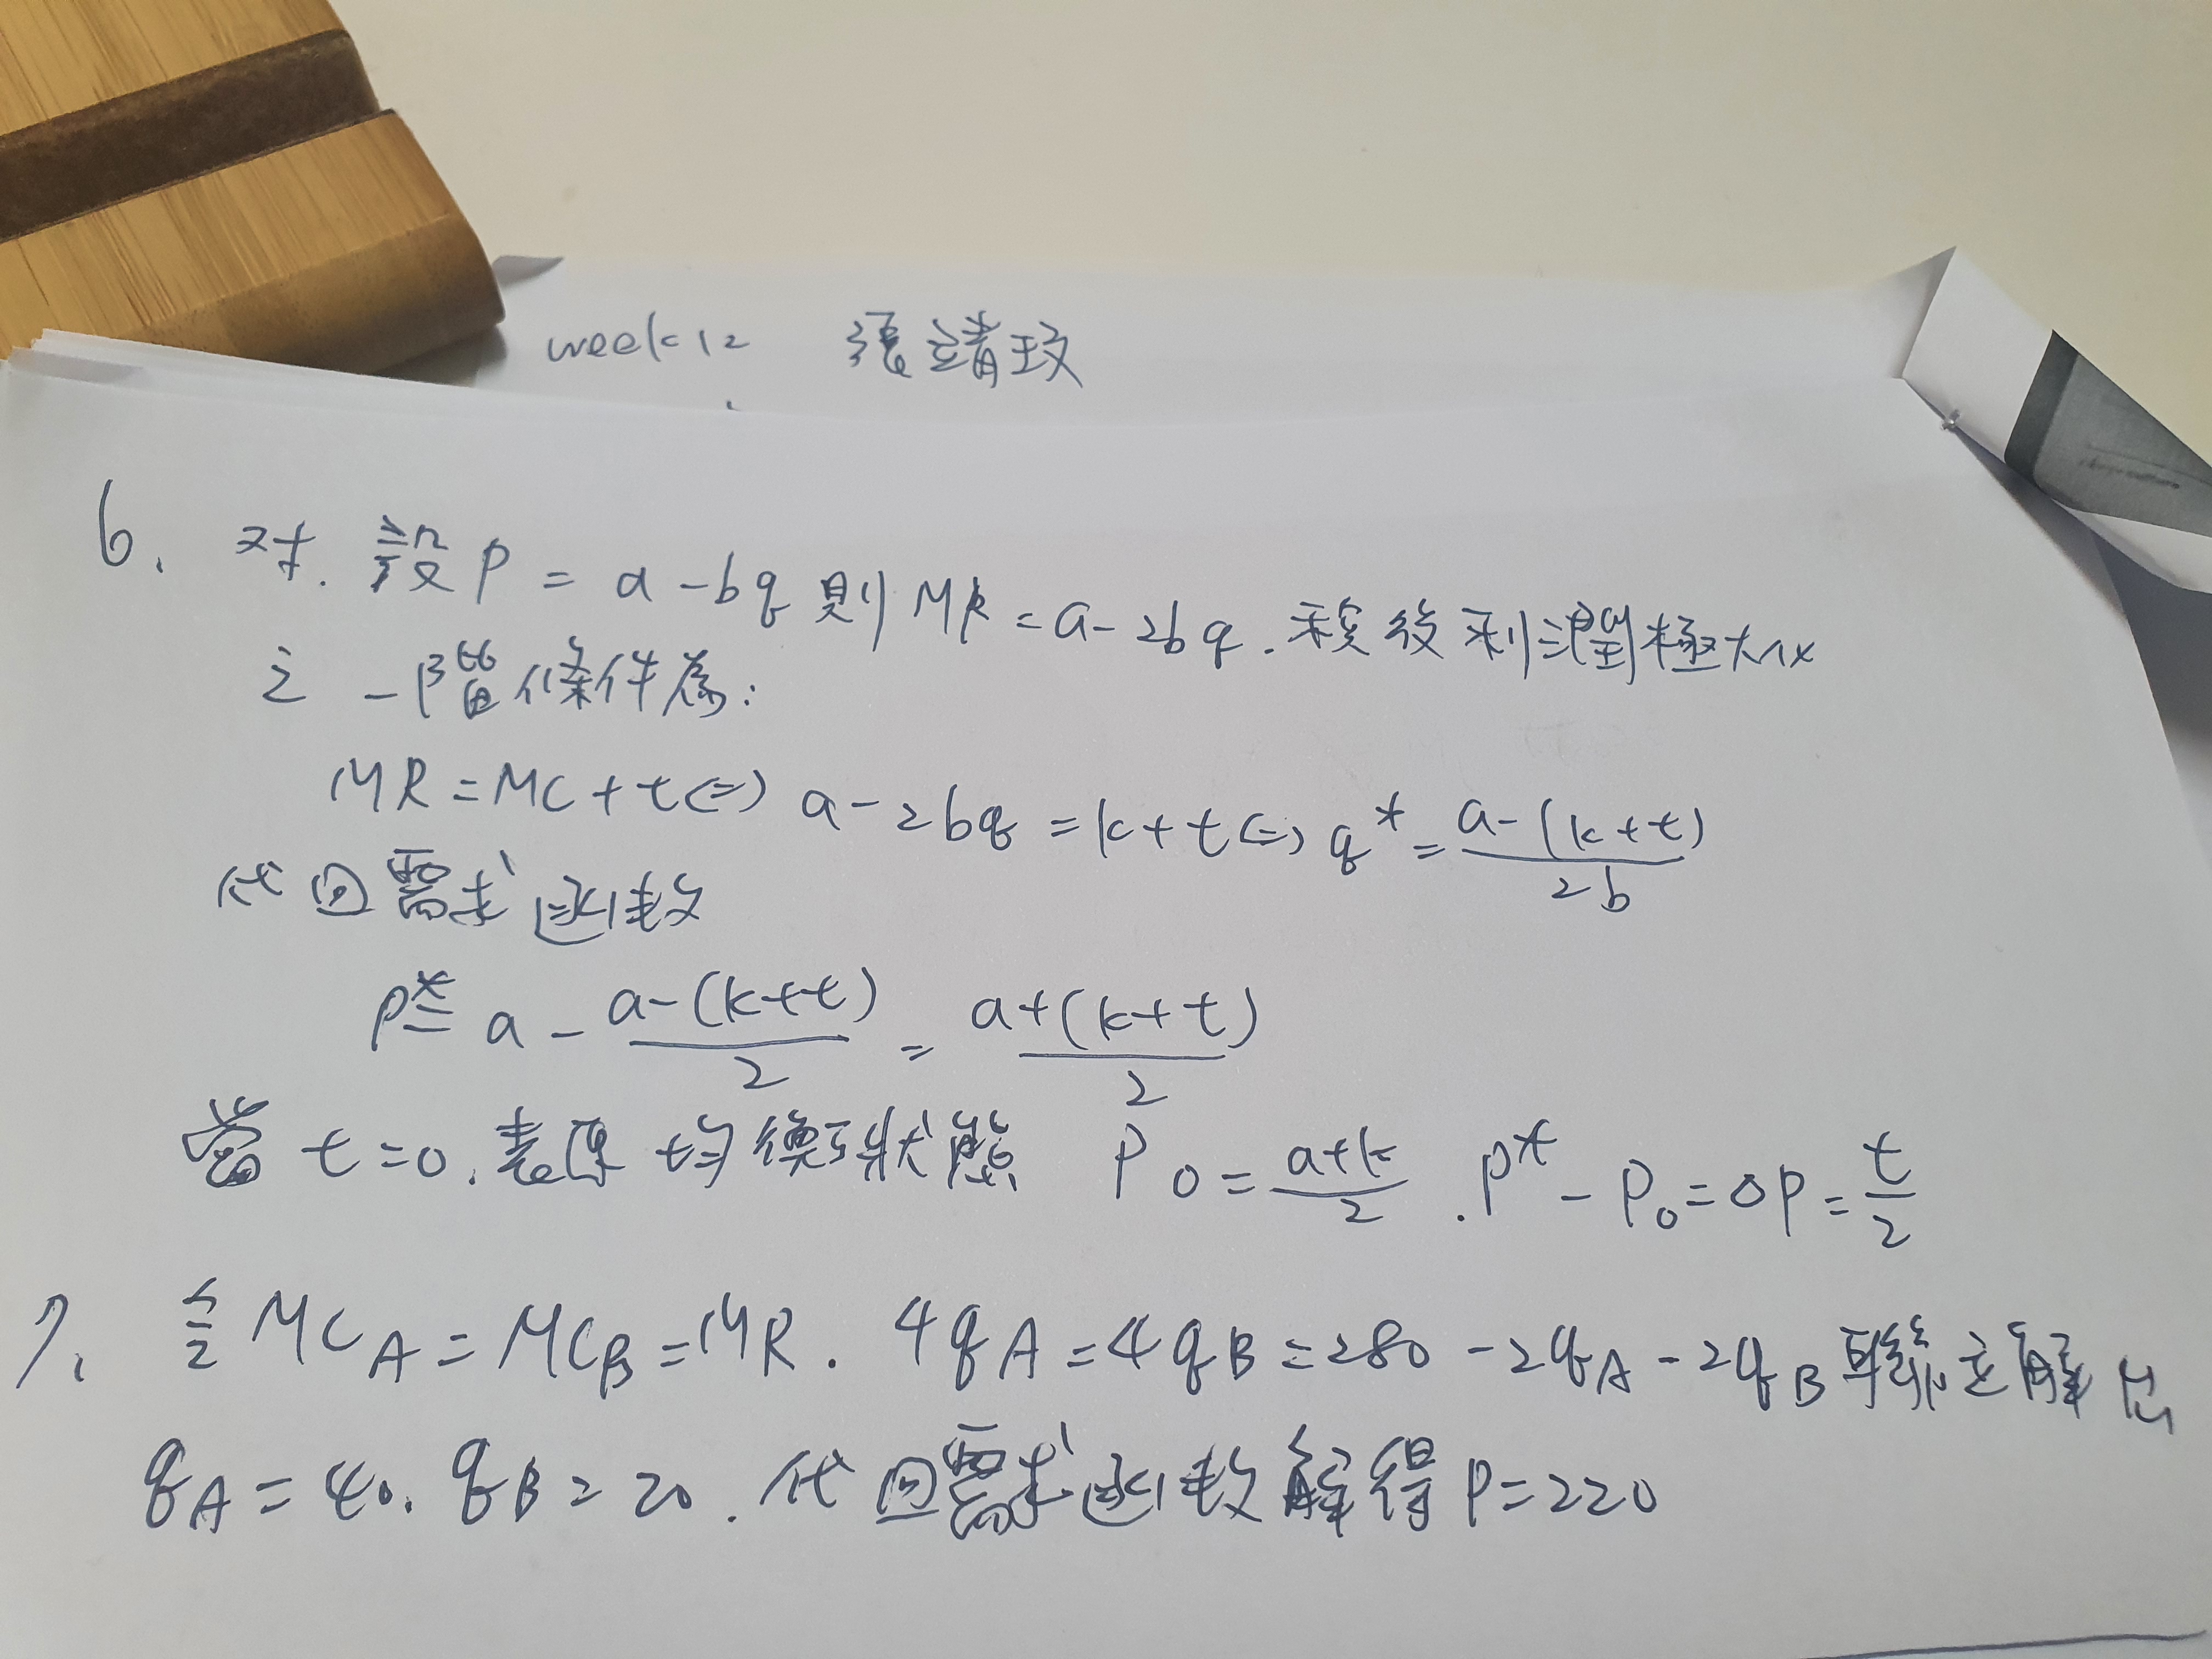 week 12 靖玟
6. 对. 設 p = a - bq 則 MR = a - 2bq. 稅後利潤極大化
之一階條件為:
MR = MC + t (=) a - 2bq = k + t (=) q* = \frac{a-(k+t)}{2b}
代回需求函數
p* = a - \frac{a-(k+t)}{2} = \frac{a+(k+t)}{2}
當 t=0. 表原均衡狀態 P0 = \frac{a+k}{2} . p* - P0 = ΔP = \frac{t}{2}
7. 令 MCA = MCB = MR. 4qA = 4qB = 280 - 2qA - 2qB 聯立解出
qA = 40. qB = 20. 代回需求函數解得 P = 220